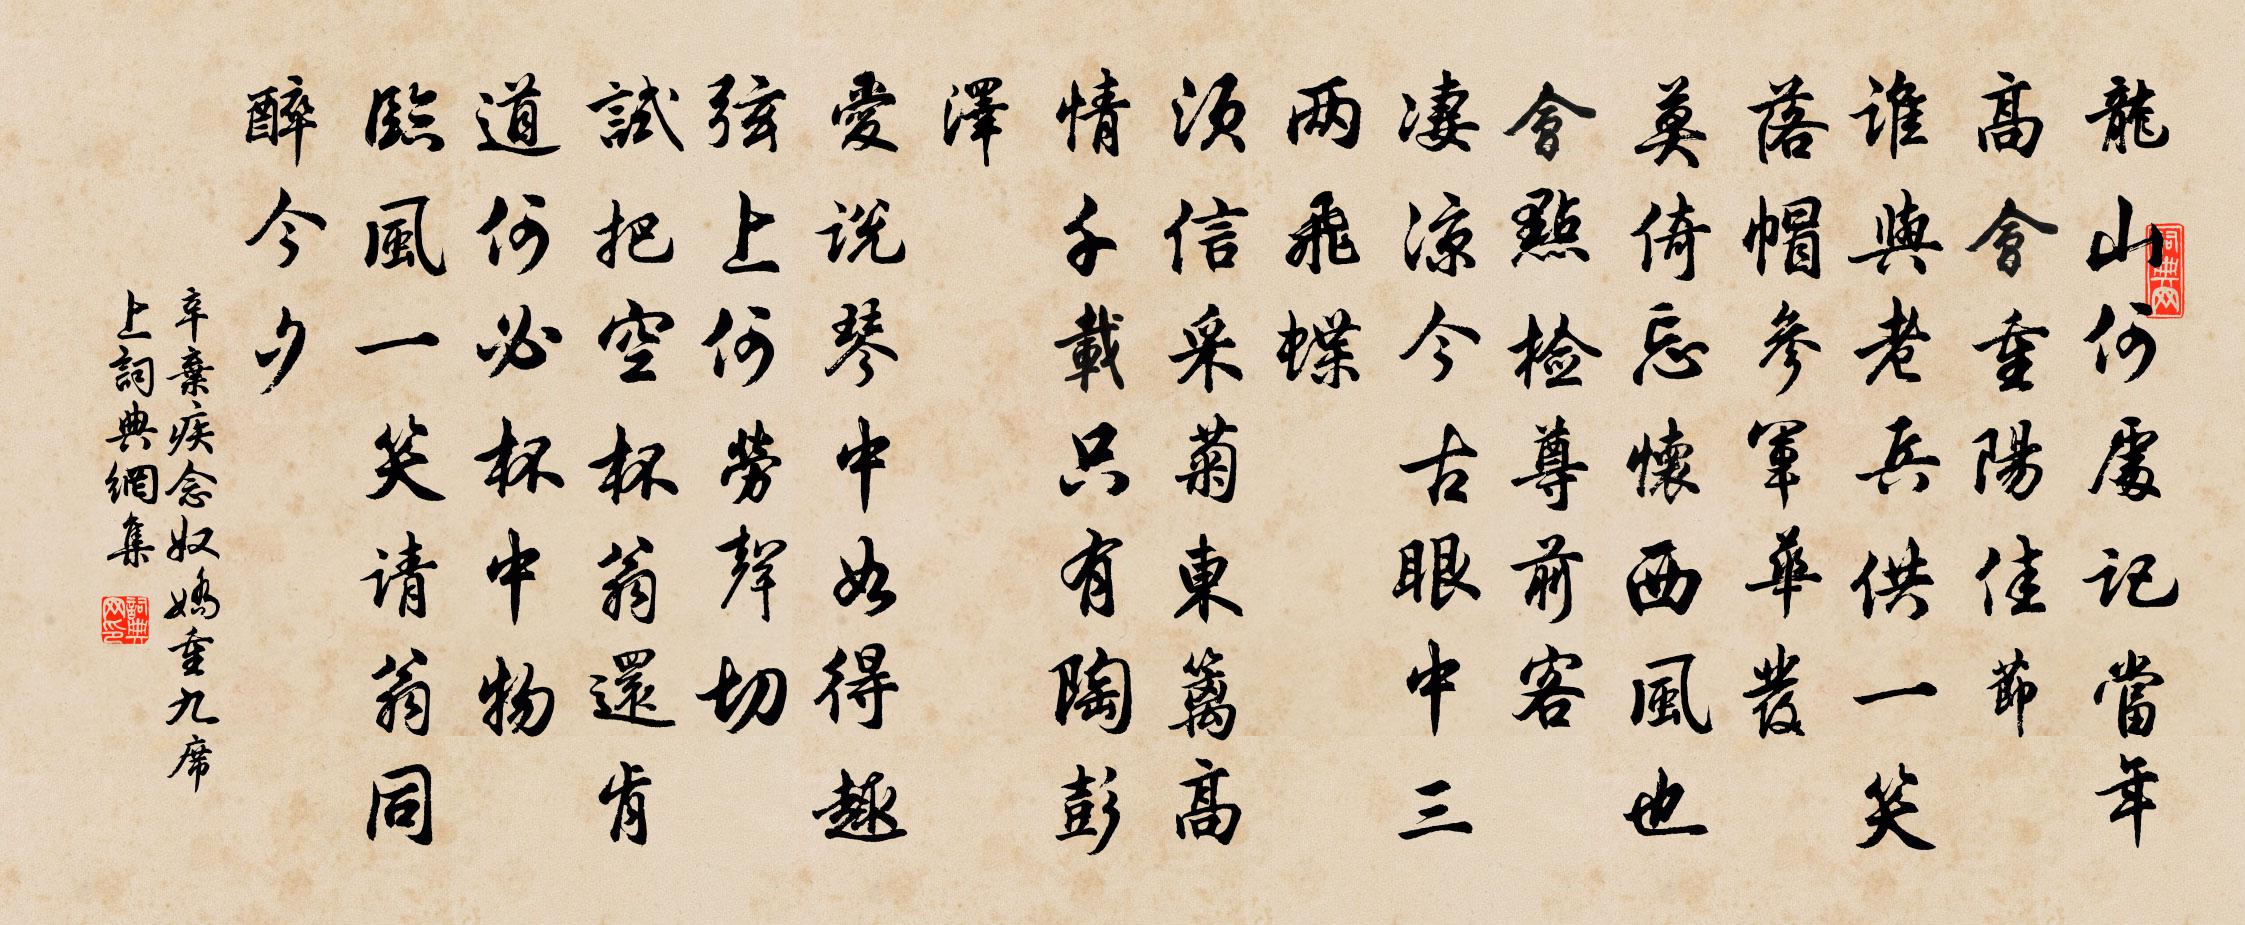 龍山何處記當年
高會重陽佳節
誰與老兵供一笑
落帽參軍華發
莫倚忘懷西風也
會點檢尊前客
凄涼今古眼中三
两飛蝶
須信采菊東籬高
情千載只有陶彭
澤
愛说琴中如得趣
弦上何勞聲切
試把空杯翁還肯
道何必杯中物
臨風一笑请翁同
醉今夕
辛棄疾念奴嬌重九席
上詞典網集
詞典网
詞典网印